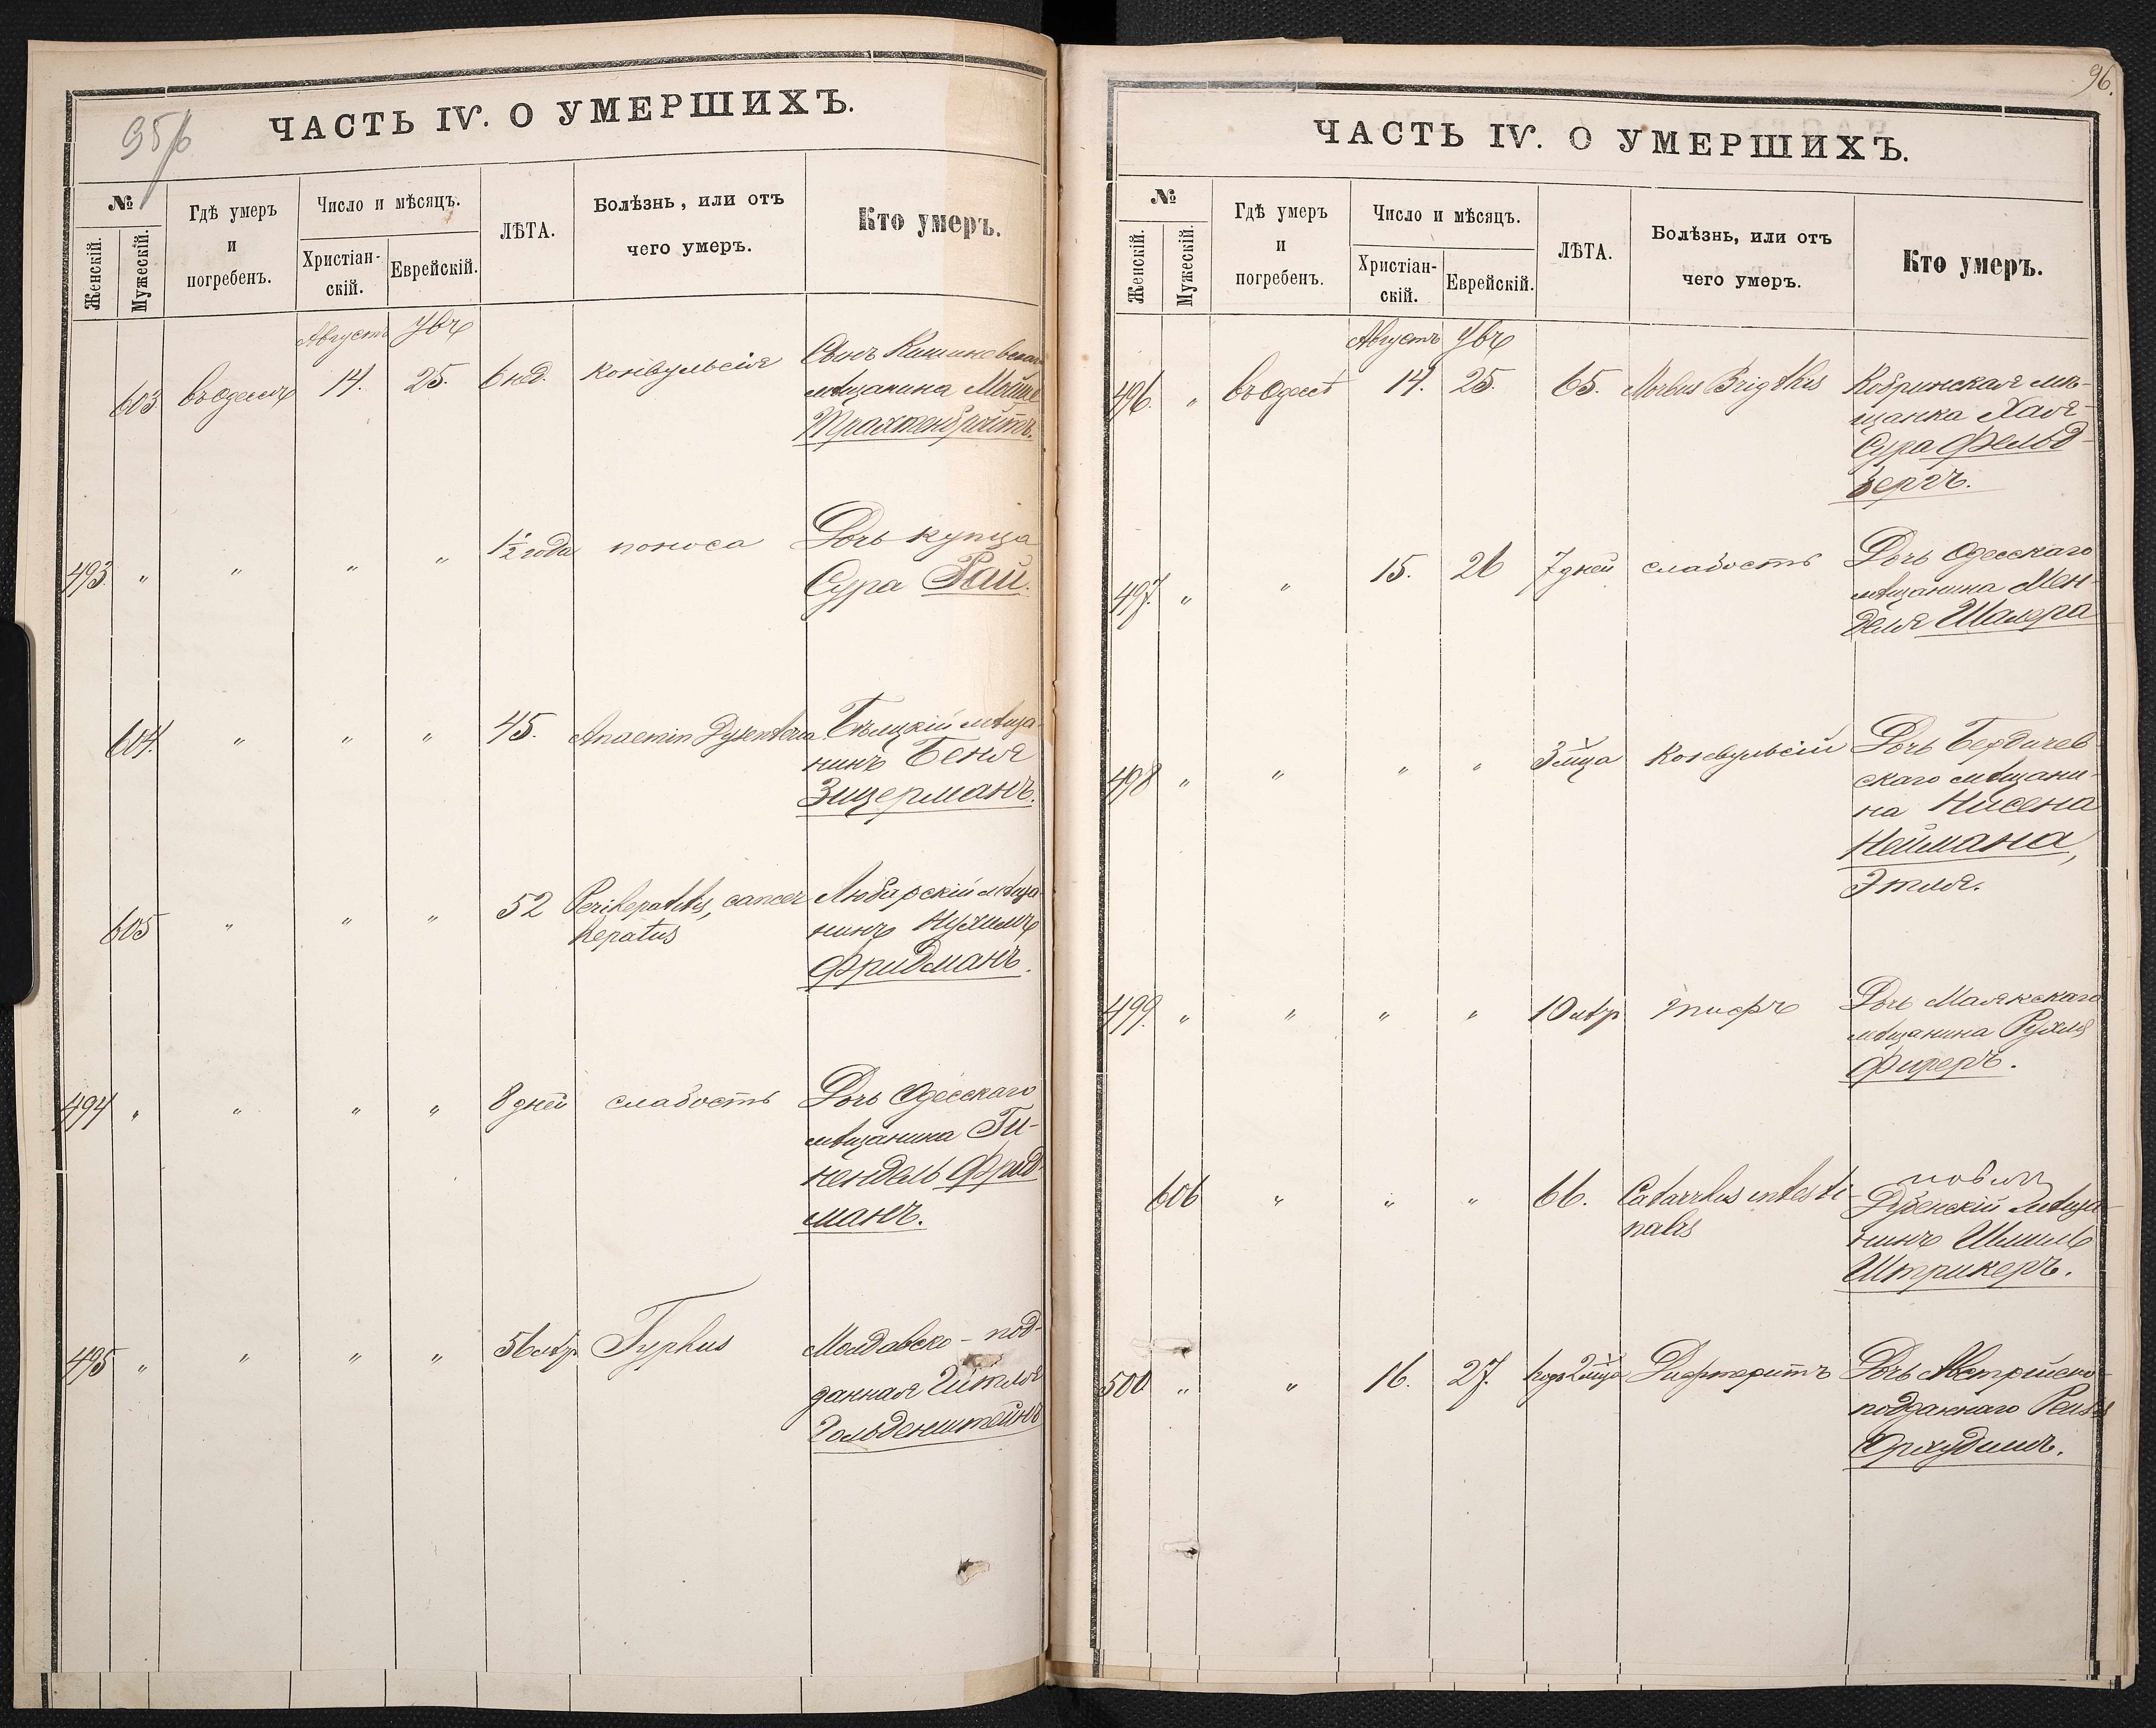 95/б
ЧАСТЬ IV. О УМЕРШИХЪ.
№
Женскій.
Мужескій.
Гдѣ умеръ
и
погребенъ.
Число и мѣсяцъ.
Христіан-
скій.
Еврейскій.
ЛѢТА.
Болѣзнь, или отъ
чего умеръ.
Кто умеръ.
Августъ
603 14. 25. 6 нед. конвульсія Сынъ Кишиневскаго
мѣщанина
493. " " " " 1½ года поноса Дочь купца
Сура Рай.
604. " " " 45. Бѣлецкій мѣща-
нинъ Беня
Зицерманъ.
605 " " " 52 Perihepatitis, cancer Любарскій мѣща-
hepatus нинъ Нухимъ
Фридманъ.
494 " " " " 8 дней слабость Дочь Одесскаго
мѣщанина Ги-
нендель Фрид-
манъ.
495 " " " " 56 лѣтъ Typhus Молдавско-под-
данная Гитля
Гольденштейнъ
96.
ЧАСТЬ IV. О УМЕРШИХЪ.
№
Женскій.
Мужескій.
Гдѣ умеръ
и
погребенъ.
Число и мѣсяцъ.
Христіан-
скій.
Еврейскій.
ЛѢТА.
Болѣзнь, или отъ
чего умеръ.
Кто умеръ.
Августъ
496. " въ Одессѣ 14. 25. 65. Morbus Brigthis Кобринская мѣ-
щанка Хая-
Сура Фельд-
бергъ.
497. " " 15. 26 7 дней слабость Дочь Одесскаго
мѣщанина Мен-
деля
498 " " " " 3 м-ца Конвульсій Дочь Бердичев-
скаго мѣщани-
на Нисена
Неймана,
Этля.
499. " " " " 10 лѣтъ тифъ Дочь Маякскаго
мѣщанина Рухля
606 " " " 66. Catarrhus intesti-
nalis Дубенскій мѣща-
нинъ
Штрикеръ.
500 " " 16. 27. Дифтеритъ Дочь Австрійско-
подданнаго